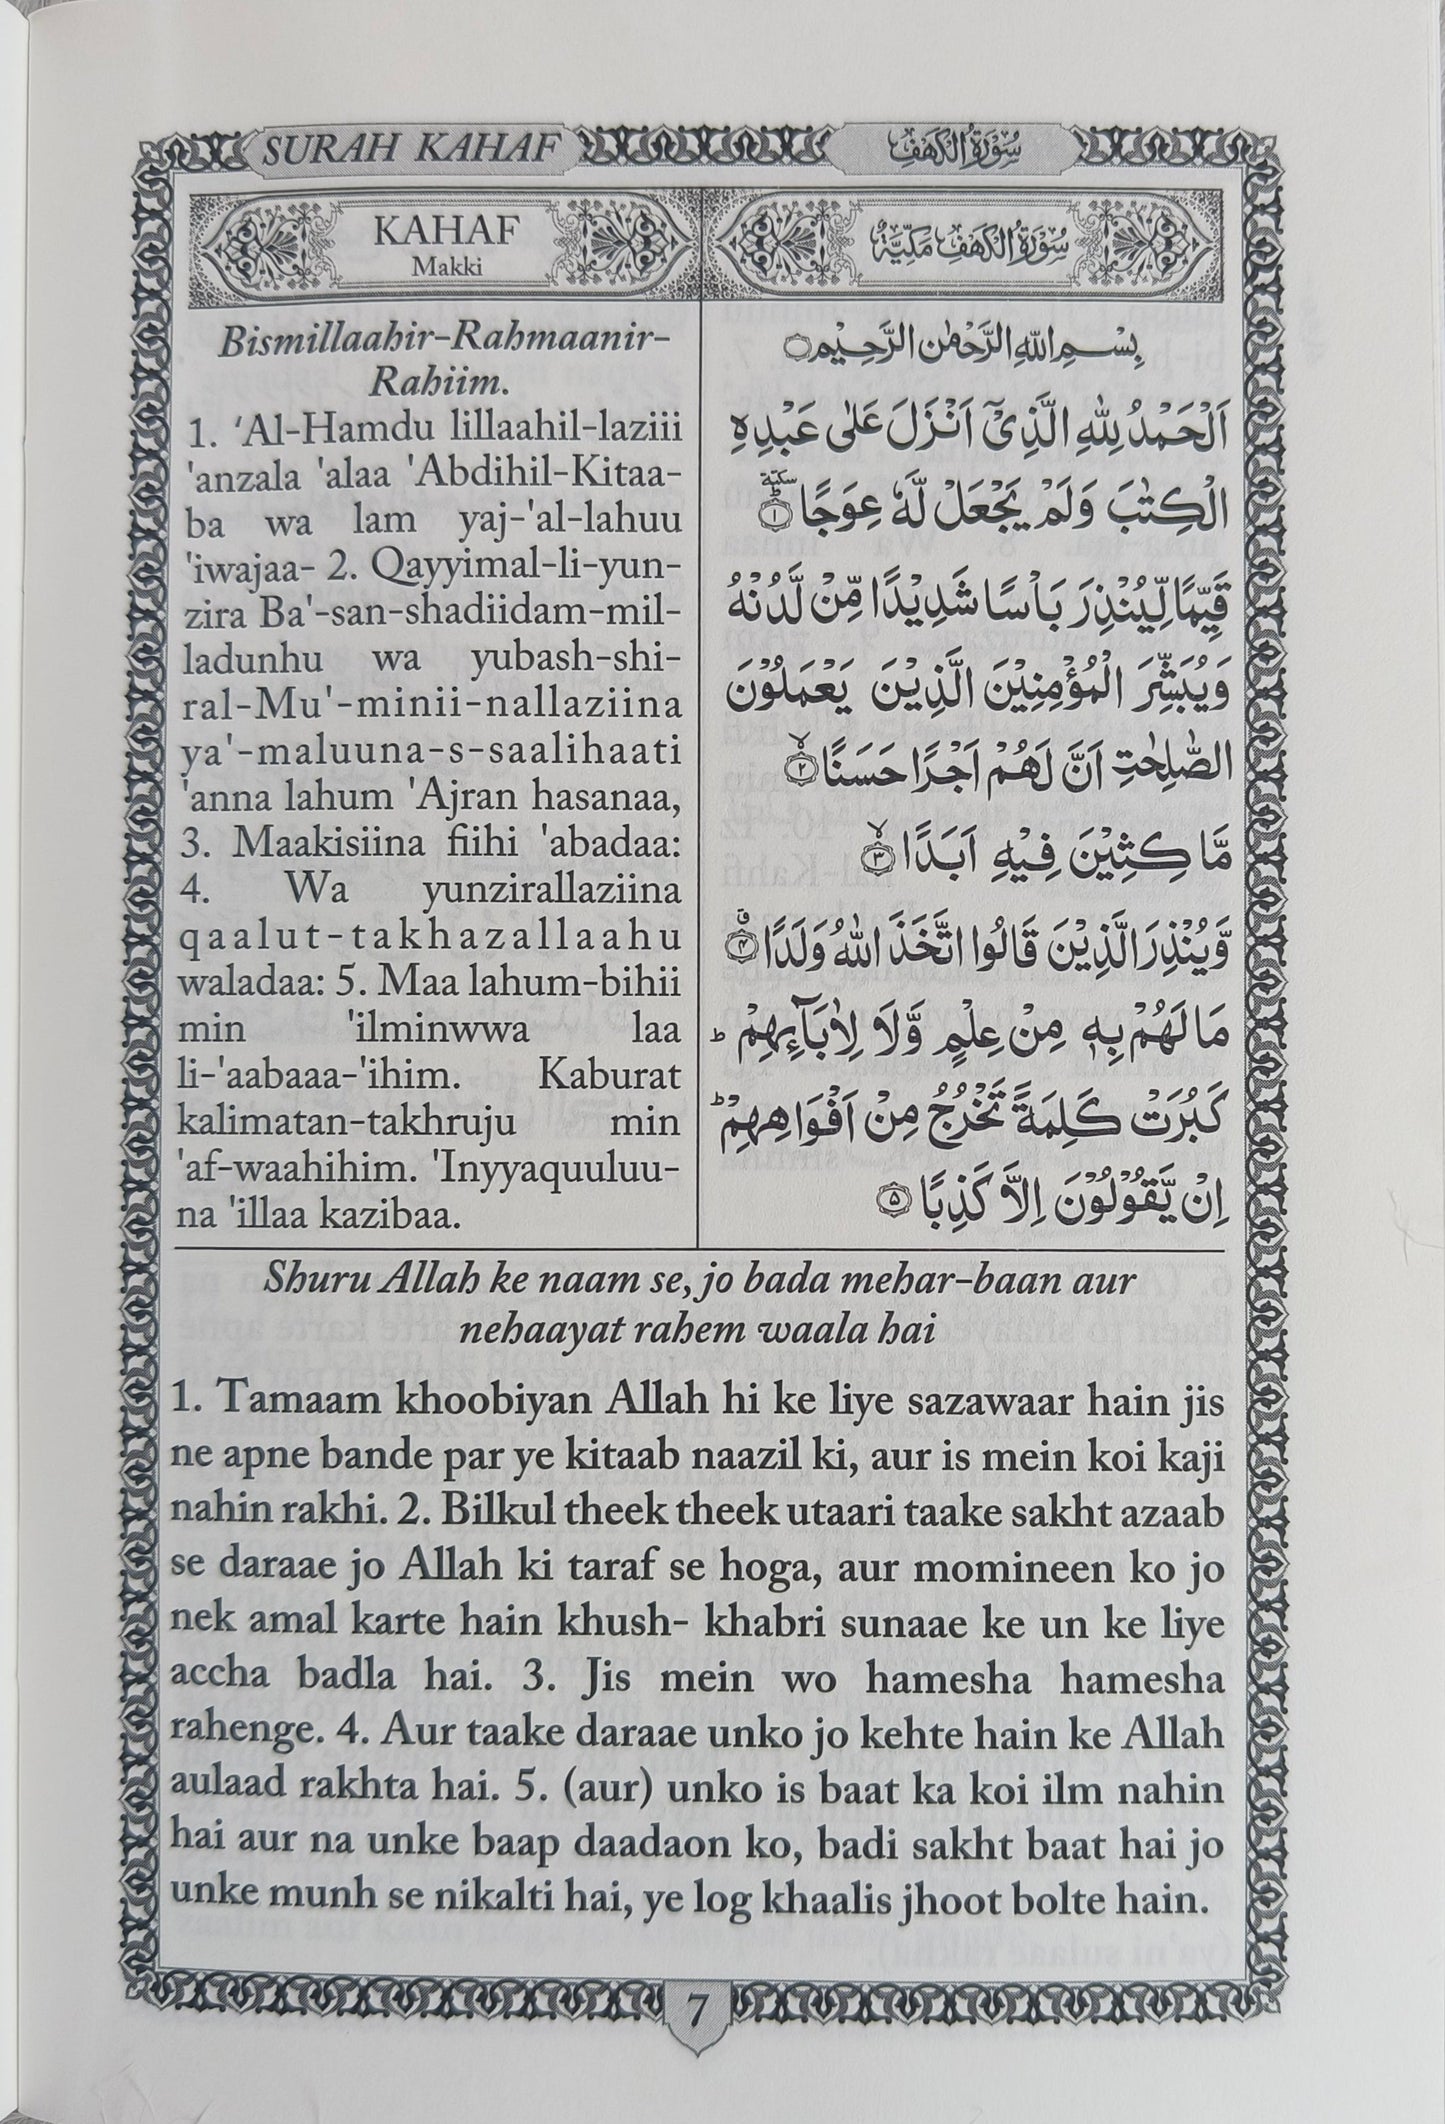 SURAH KAHAF
سُوْرَةُ الْكَهْف
KAHAF
Makki
سُوْرَةُ الْكَهْفِ مَكِّيَّةٌ
Bismillaahir-Rahmaanir-
Rahiim.
1. ‘Al-Hamdu lillaahil-laziii
'anzala 'alaa 'Abdihil-Kitaa-
ba wa lam yaj-'al-lahuu
'iwajaa- 2. Qayyimal-li-yun-
zira Ba'-san-shadiidam-mil-
ladunhu wa yubash-shi-
ral-Mu'-minii-nallaziina
ya'-maluuna-s-saalihaati
'anna lahum 'Ajran hasanaa,
3. Maakisiina fiihi 'abadaa:
4. Wa yunzirallaziina
qaalut-takhazallaahu
waladaa: 5. Maa lahum-bihii
min 'ilminwwa laa
li-'aabaaa-'ihim. Kaburat
kalimatan-takhruju min
'af-waahihim. 'Inyyaquuluu-
na 'illaa kazibaa.
بِسْمِ اللّٰهِ الرَّحْمٰنِ الرَّحِيْمِ۝
اَلْحَمْدُ لِلّٰهِ الَّذِيْٓ اَنْزَلَ عَلٰى عَبْدِهِ
الْكِتٰبَ وَلَمْ يَجْعَلْ لَّهٗ عِوَجًا ؕ سكتة ۝۱
قَيِّمًا لِّيُنْذِرَ بَاْسًا شَدِيْدًا مِّنْ لَّدُنْهُ
وَيُبَشِّرَ الْمُؤْمِنِيْنَ الَّذِيْنَ يَعْمَلُوْنَ
الصّٰلِحٰتِ اَنَّ لَهُمْ اَجْرًا حَسَنًا ۙ۝۲
مَّا كِثِيْنَ فِيْهِ اَبَدًا ۙ۝۳
وَّيُنْذِرَ الَّذِيْنَ قَالُوا اتَّخَذَ اللّٰهُ وَلَدًا ۗ۝۴
مَا لَهُمْ بِهٖ مِنْ عِلْمٍ وَّلَا لِاٰبَآئِهِمْ ؕ
كَبُرَتْ كَلِمَةً تَخْرُجُ مِنْ اَفْوَاهِهِمْ ؕ
اِنْ يَّقُوْلُوْنَ اِلَّا كَذِبًا ۝۵
Shuru Allah ke naam se, jo bada mehar-baan aur
nehaayat rahem waala hai
1. Tamaam khoobiyan Allah hi ke liye sazawaar hain jis
ne apne bande par ye kitaab naazil ki, aur is mein koi kaji
nahin rakhi. 2. Bilkul theek theek utaari taake sakht azaab
se daraae jo Allah ki taraf se hoga, aur momineen ko jo
nek amal karte hain khush- khabri sunaae ke un ke liye
accha badla hai. 3. Jis mein wo hamesha hamesha
rahenge. 4. Aur taake daraae unko jo kehte hain ke Allah
aulaad rakhta hai. 5. (aur) unko is baat ka koi ilm nahin
hai aur na unke baap daadaon ko, badi sakht baat hai jo
unke munh se nikalti hai, ye log khaalis jhoot bolte hain.
7